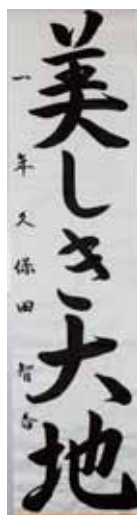 美しき大地
一年久保田智香